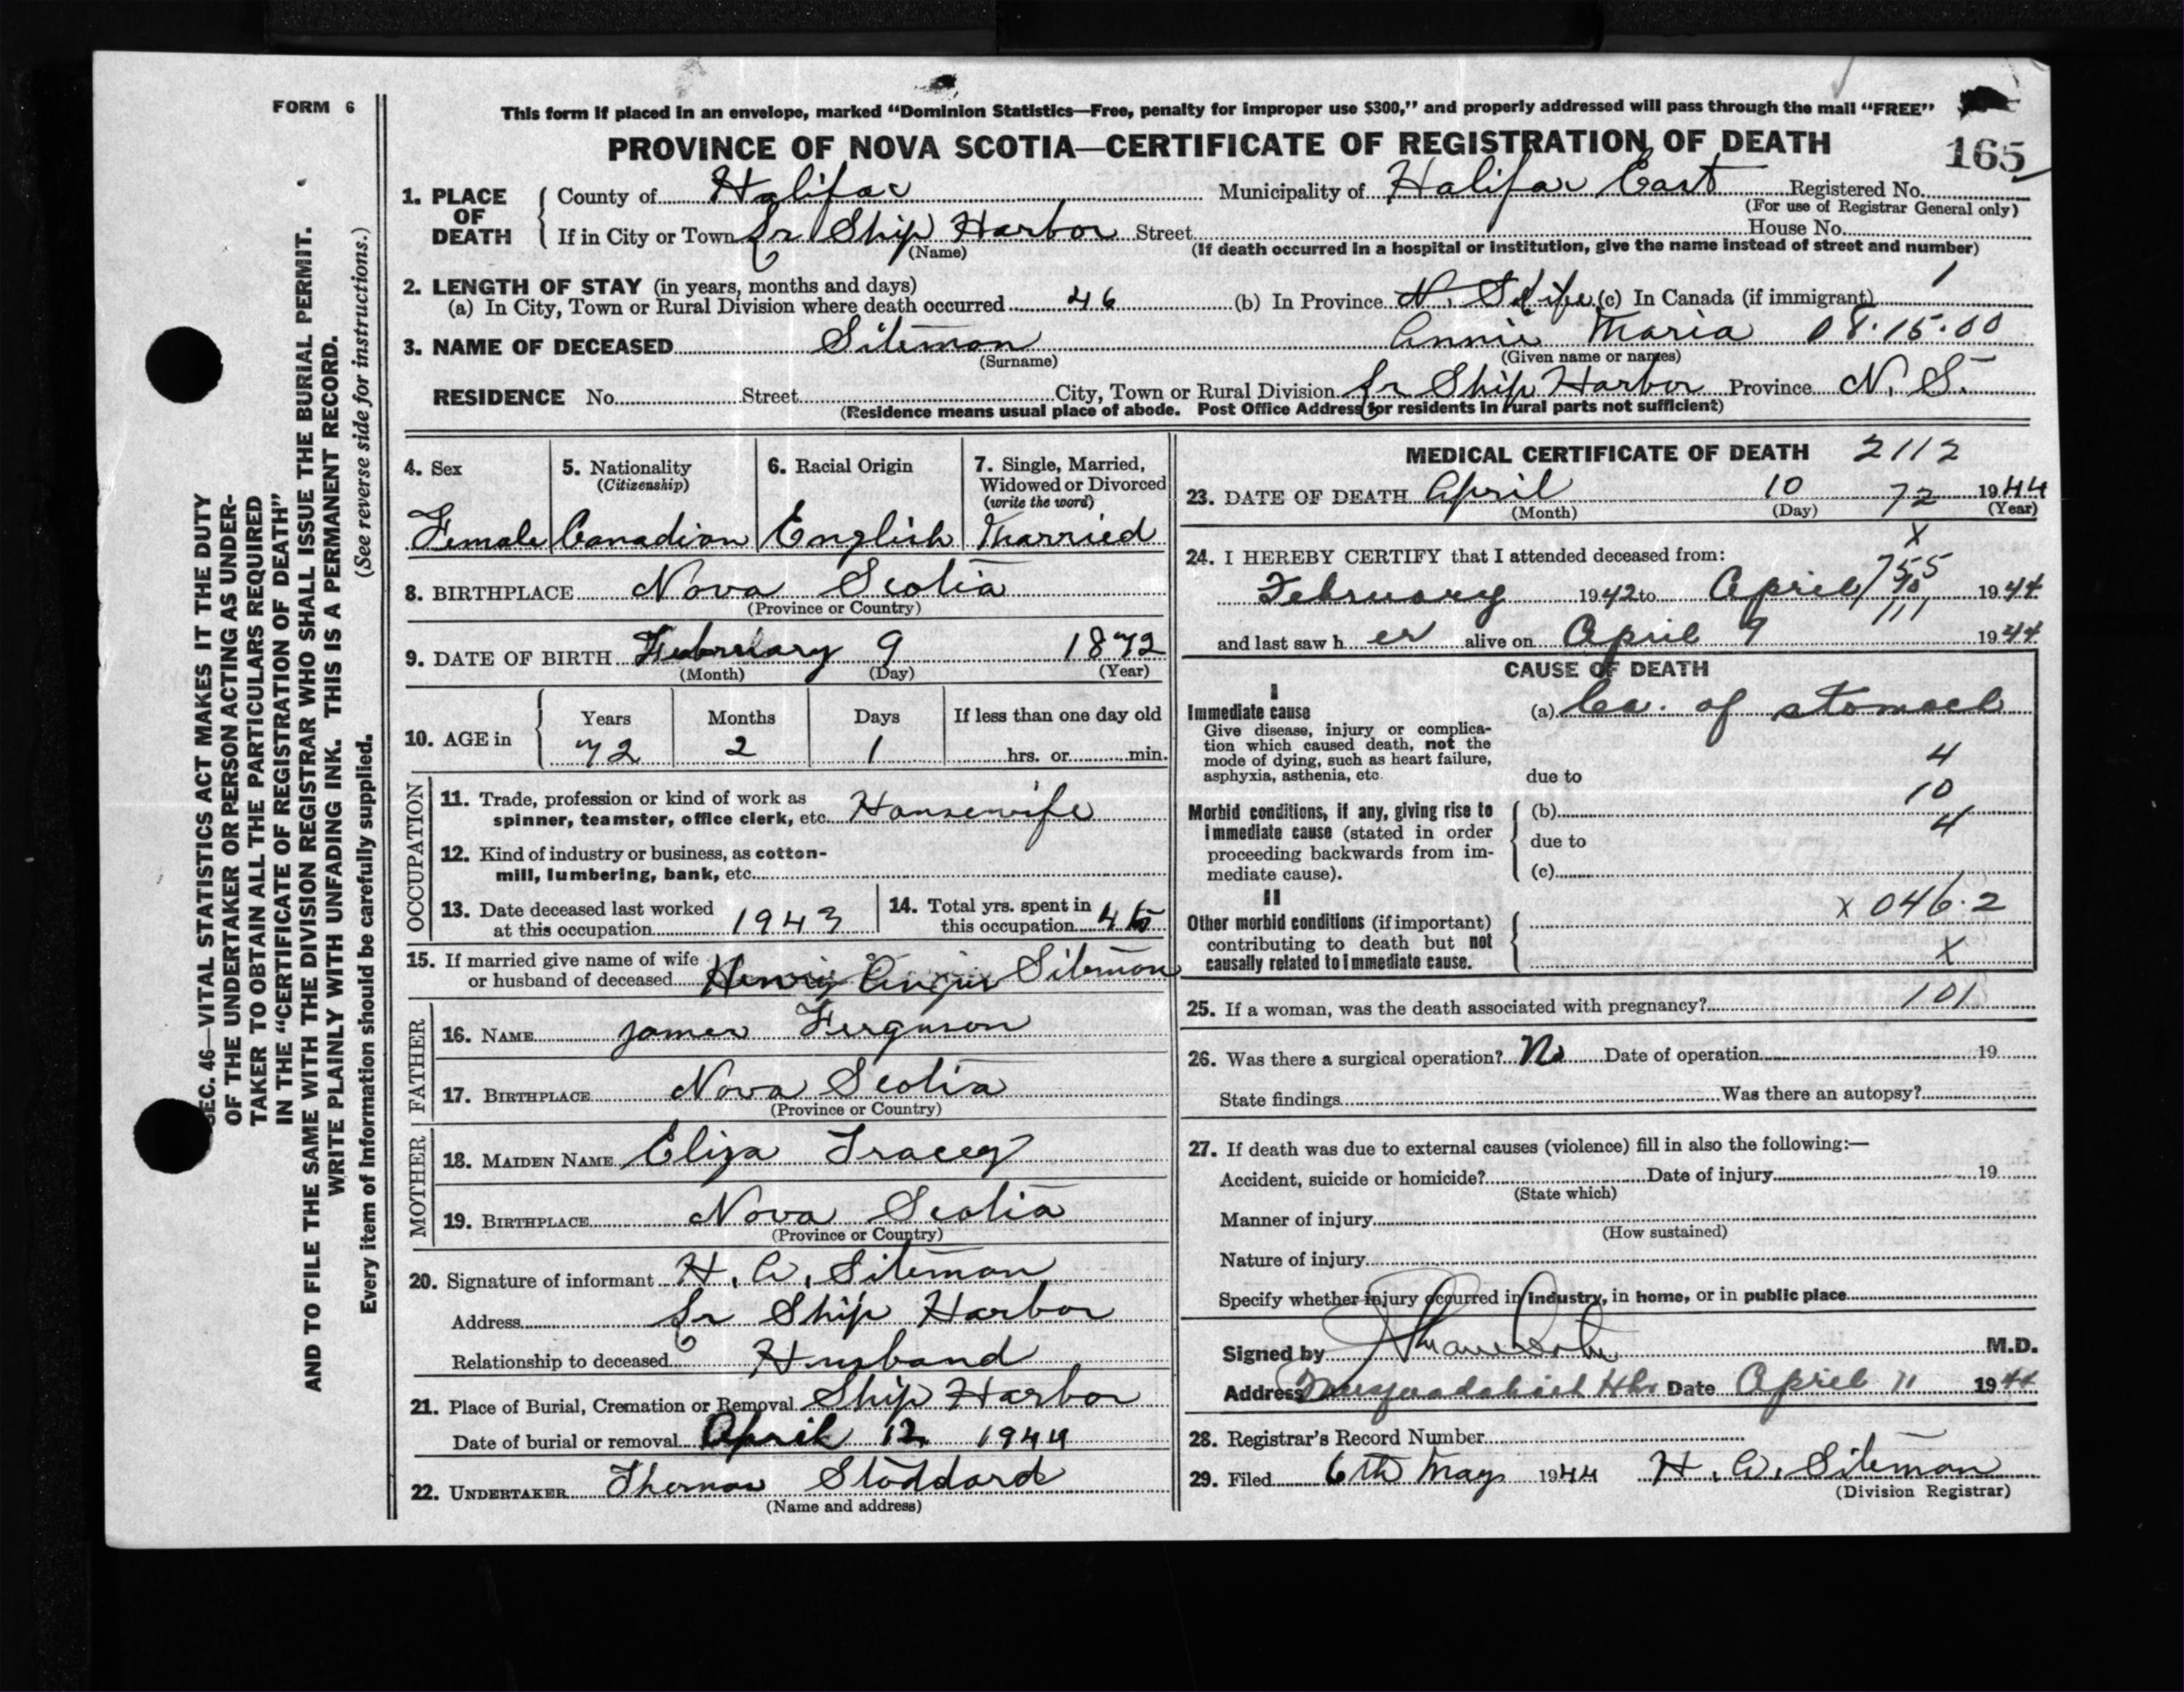 FORM 6
This form if placed in an envelope, marked “Dominion Statistics—Free, penalty for improper use $300,” and properly addressed will pass through the mail “FREE”
PROVINCE OF NOVA SCOTIA—CERTIFICATE OF REGISTRATION OF DEATH
165
1. PLACE OF DEATH
County of Halifax Municipality of Halifax East Registered No.
(For use of Registrar General only)
If in City or Town Lr Ship Harbor Street House No.
(Name) (If death occurred in a hospital or institution, give the name instead of street and number)
2. LENGTH OF STAY (in years, months and days)
(a) In City, Town or Rural Division where death occurred 46 (b) In Province N. S life (c) In Canada (if immigrant) 1
3. NAME OF DECEASED Siteman Annie Maria 08.15.00
(Surname) (Given name or names)
RESIDENCE No. Street City, Town or Rural Division Lr Ship Harbor Province N. S.
(Residence means usual place of abode. Post Office Address for residents in rural parts not sufficient)
4. Sex
Female
5. Nationality
(Citizenship)
Canadian
6. Racial Origin
English
7. Single, Married,
Widowed or Divorced
(write the word)
Married
8. BIRTHPLACE Nova Scotia
(Province or Country)
9. DATE OF BIRTH February 9 1872
(Month) (Day) (Year)
10. AGE in
Years Months Days If less than one day old
72 2 1 hrs. or min.
OCCUPATION
11. Trade, profession or kind of work as
spinner, teamster, office clerk, etc. Housewife
12. Kind of industry or business, as cotton-
mill, lumbering, bank, etc.
13. Date deceased last worked
at this occupation 1943
14. Total yrs. spent in
this occupation
15. If married give name of wife
or husband of deceased Henry Angus Siteman
FATHER
16. NAME James Ferguson
17. BIRTHPLACE Nova Scotia
(Province or Country)
MOTHER
18. MAIDEN NAME Eliza Tracey
19. BIRTHPLACE Nova Scotia
(Province or Country)
20. Signature of informant H. A. Siteman
Address Lr Ship Harbor
Relationship to deceased Husband
21. Place of Burial, Cremation or Removal Ship Harbor
Date of burial or removal April 12 1944
22. UNDERTAKER Thomas Stoddard
(Name and address)
MEDICAL CERTIFICATE OF DEATH 2112
23. DATE OF DEATH April 10 72 1944
(Month) (Day) (Year)
X
24. I HEREBY CERTIFY that I attended deceased from:
755
February 1942 to April 10 1944
111
and last saw her alive on April 9 1944
CAUSE OF DEATH
I
Immediate cause
Give disease, injury or complica-
tion which caused death, not the
mode of dying, such as heart failure,
asphyxia, asthenia, etc.
(a) Ca. of stomach
4
due to
10
Morbid conditions, if any, giving rise to
immediate cause (stated in order
proceeding backwards from im-
mediate cause).
(b)
4
due to
(c)
II
Other morbid conditions (if important)
contributing to death but not
causally related to immediate cause.
X 046.2
X
25. If a woman, was the death associated with pregnancy? 101
26. Was there a surgical operation? No Date of operation 19
State findings Was there an autopsy?
27. If death was due to external causes (violence) fill in also the following:—
Accident, suicide or homicide? Date of injury 19
(State which)
Manner of injury
(How sustained)
Nature of injury
Specify whether injury occurred in industry, in home, or in public place
Signed by M.D.
Address Musquodoboit Hbr Date April 11 1944
28. Registrar's Record Number
29. Filed 6th May 1944 H. A. Siteman
(Division Registrar)
SEC. 46—VITAL STATISTICS ACT MAKES IT THE DUTY
OF THE UNDERTAKER OR PERSON ACTING AS UNDER-
TAKER TO OBTAIN ALL THE PARTICULARS REQUIRED
IN THE “CERTIFICATE OF REGISTRATION OF DEATH”
AND TO FILE THE SAME WITH THE DIVISION REGISTRAR WHO SHALL ISSUE THE BURIAL PERMIT.
WRITE PLAINLY WITH UNFADING INK. THIS IS A PERMANENT RECORD.
(See reverse side for instructions.)
Every item of information should be carefully supplied.